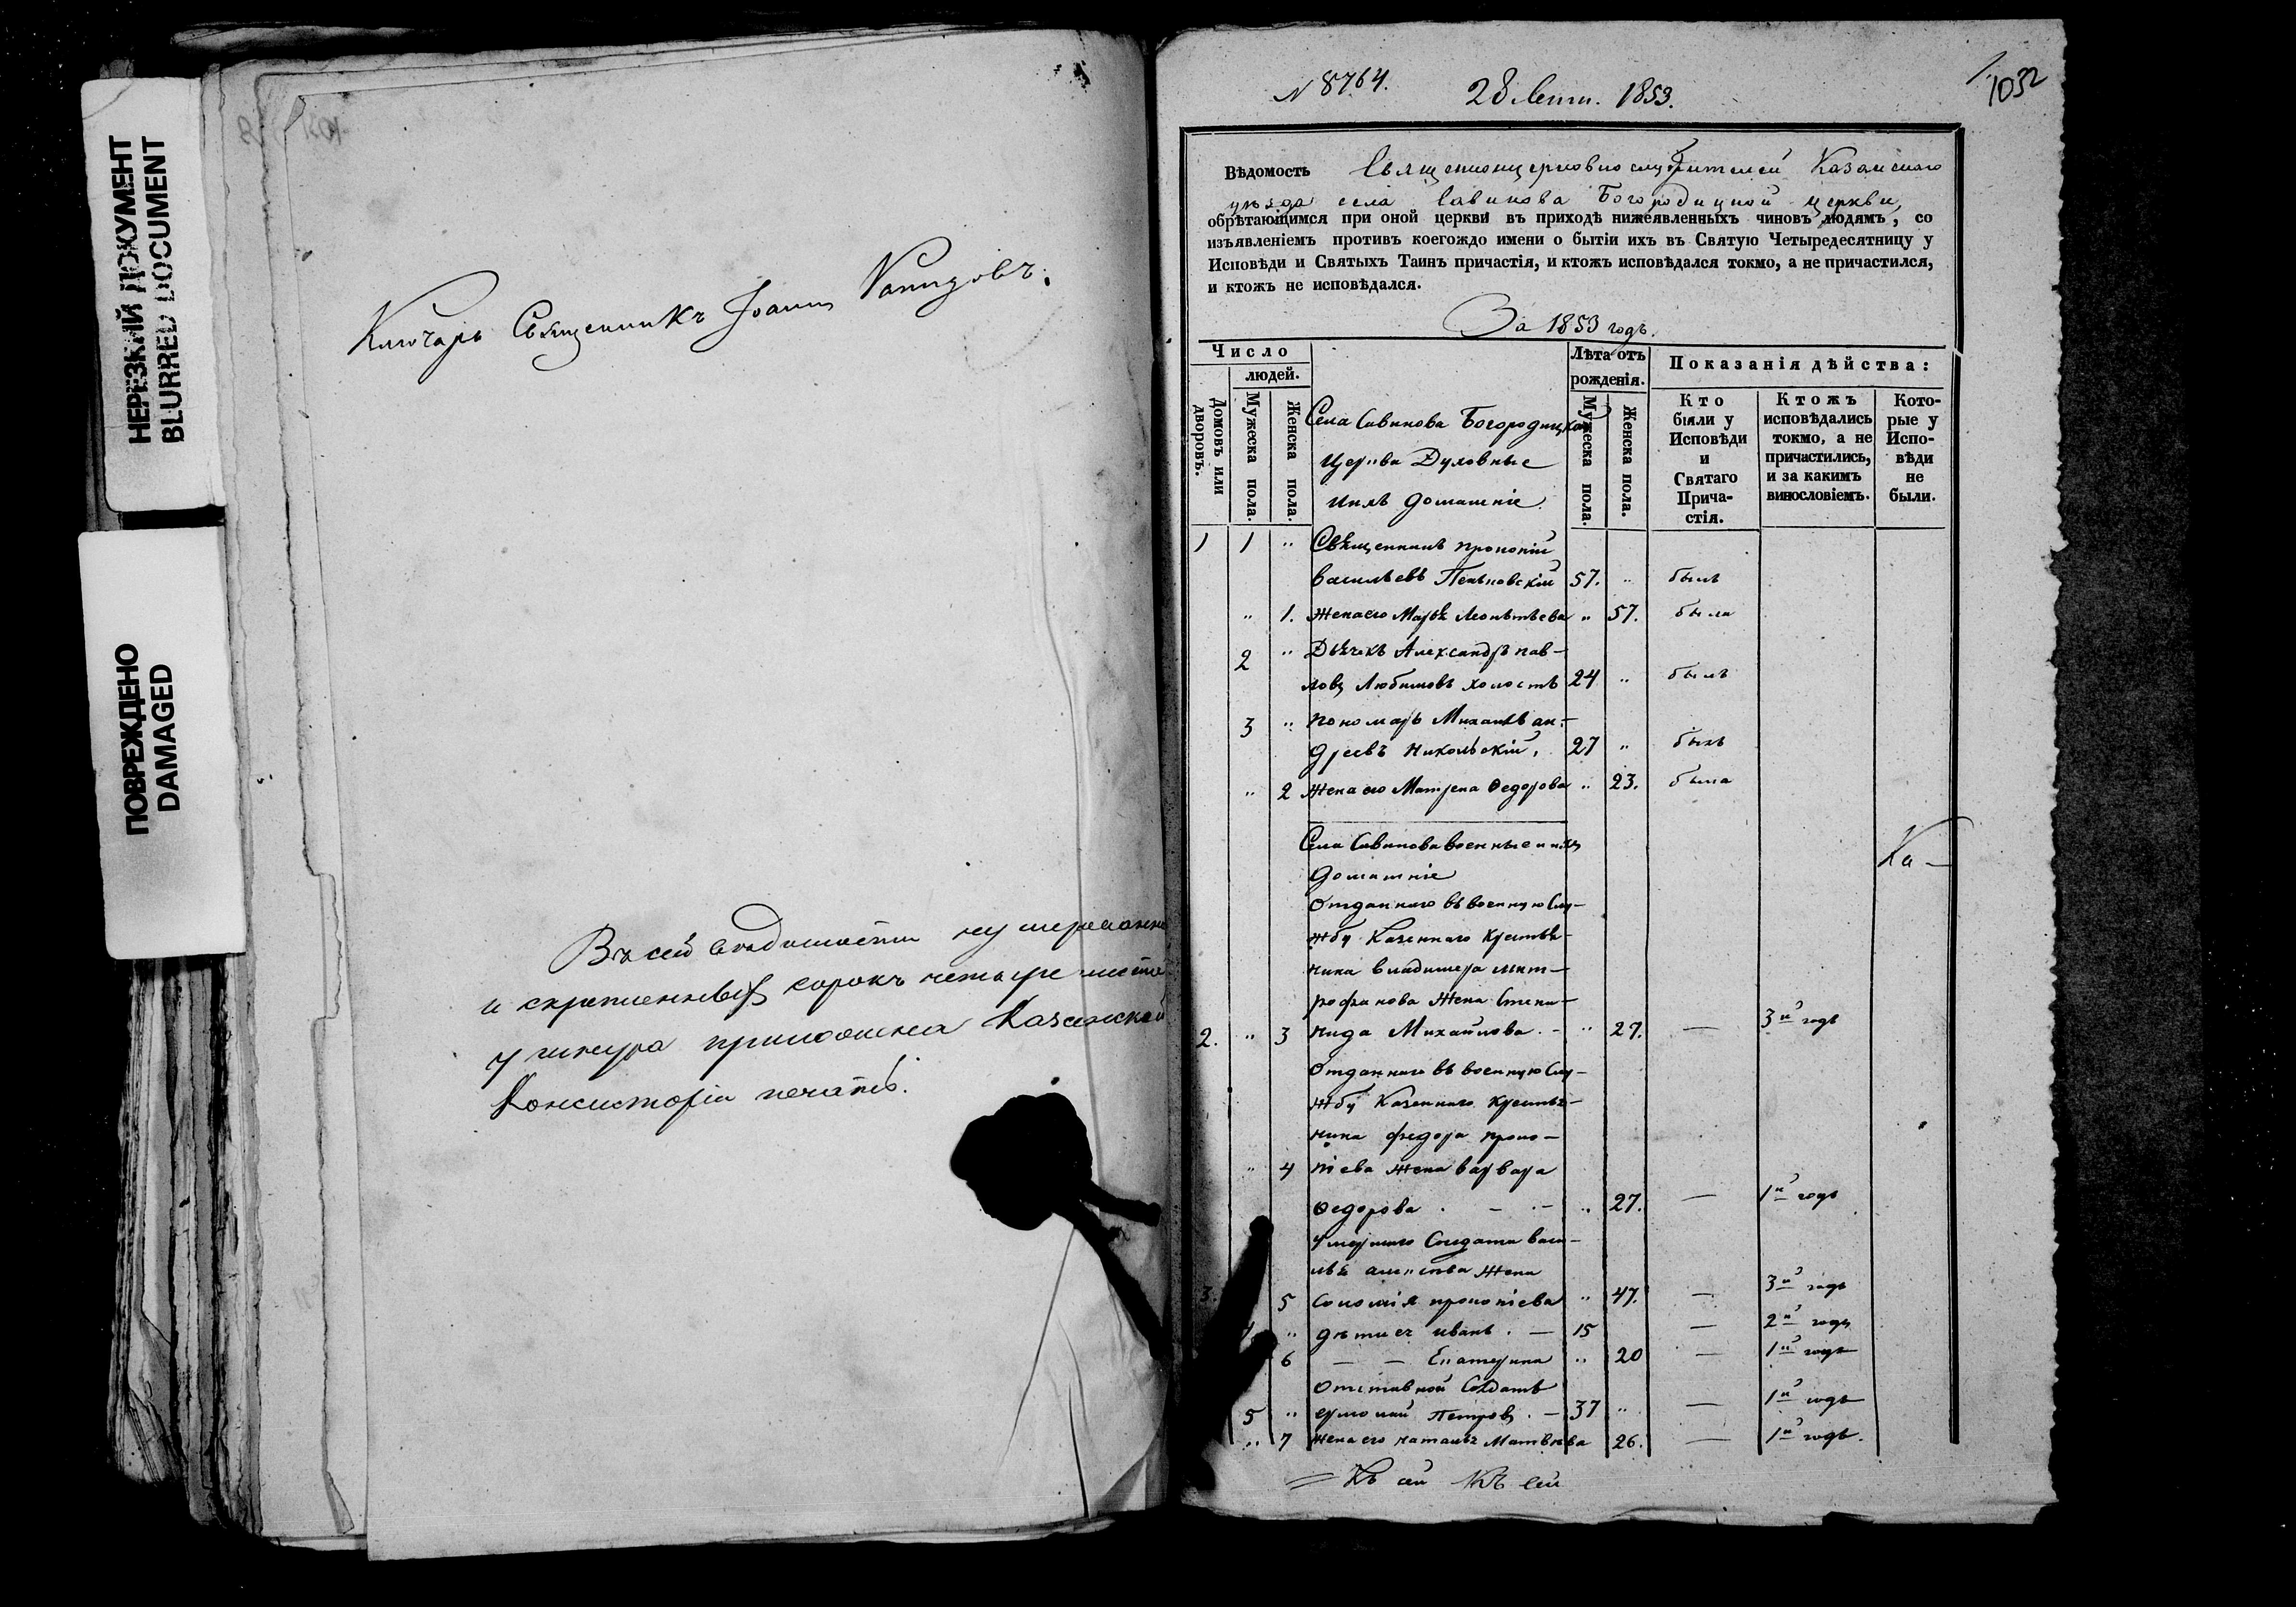 НЕРЕЗКИЙ ДОКУМЕНТ
BLURRED DOCUMENT
ПОВРЕЖДЕНО
DAMAGED
Ключарь Священникъ Іоаннъ
Въ сей вѣдомости нумерованныхъ
и скрепленныхъ сорокъ четыре листа
у шнура приложена Казанской
Консисторіи печать.
N 8764.
28 Сент. 1853.
1032
Вѣдомость Священноцерковнослужителей Казанскаго
уѣзда села Савинова Богородицкой церкви,
обрѣтающимся при оной церкви въ приходѣ нижеявленныхъ чиновъ людямъ, со
изъявленіемъ противъ коегождо имени о бытіи ихъ въ Святую Четыредесятницу у
Исповѣди и Святыхъ Таинъ причастія, и ктожъ исповѣдался токмо, а не причастился,
и ктожъ не исповѣдался.
За 1853 годъ.
Число
людей.
Домовъ или дворовъ.
Мужеска пола.
Женска пола.
Лѣта отъ рожденія.
Мужеска пола.
Женска пола.
Показанія дѣйства:
Кто были у Исповѣди и Святаго Причастія.
Ктожъ исповѣдались токмо, а не причастились, и за какимъ винословіемъ.
Которые у Исповѣди не были.
Села Савинова Богородицкой
Церкви Духовные
и ихъ домашніе
1 1 " Священникъ Прокопій
Васильевъ Пеньковскій 57. " былъ
" 1. Жена его Марья Леонтьева " 57. была
2 " Дьячекъ Александръ Пав-
ловъ Любимовъ холостъ 24 " былъ
3 " Пономарь Михаилъ Ан-
дреевъ Никольскій, 27 " былъ
" 2 Жена его Матрена Ѳедорова " 23. была
Села Савинова военные и ихъ
домашніе
Ка-
Отданнаго въ военную слу-
жбу Казеннаго крестья-
нина Владимера Мит-
рофанова Жена Степа-
2. " 3 нида Михайлова. - " 27. — 3й годъ
Отданнаго въ военную слу-
жбу Казеннаго крестья-
нина Федора Проко-
" 4 піева жена Варвара
Ѳедорова . - - " 27. — 1й годъ
Умершаго Солдата Васи-
лья жена
3. 5 Соломія Прокопіева " 47. — 3й годъ
4 " дѣти ея Иванъ . — 15 — 2й годъ
6 — — Екатерина " 20 — 1й годъ
Отставной Солдатъ
5 " Ермолай Петровъ . — 37 " — 1й годъ
" 7 Жена его Наталья Матвѣева 26. — 1й годъ.
= Къ сей Къ сей